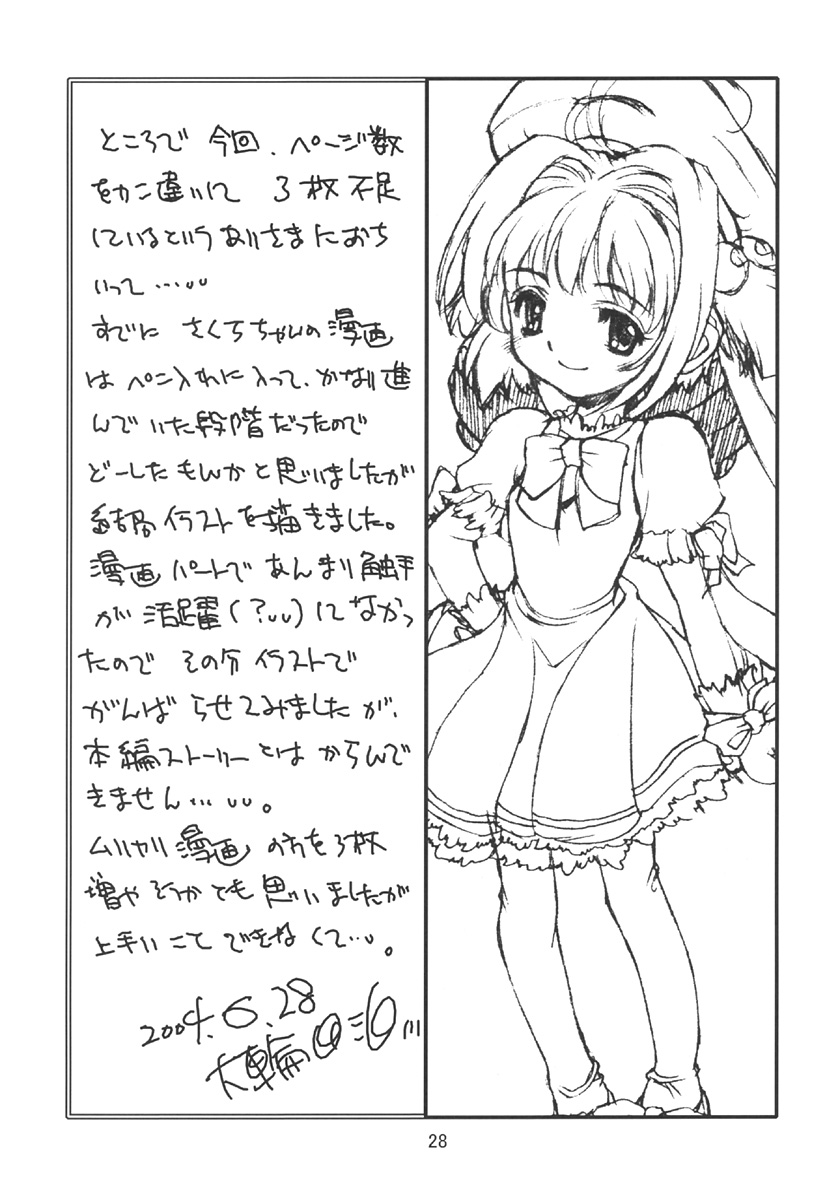 ところで 今回、ページ数
をかン違いして 3枚不足
しているというありさまにおち
いって…

すでに さくらちゃんの漫画
は ペン入れに入って、かなり進
んでいた段階だったので
どーしたもんかと思いましたが
結局イラストを描きました。
漫画パートであんまり触手
が活躍(?)しなかっ
たので その分イラストで
がんばらせてみましたが、
本編ストーリーとはからんで
きません…。
ムリヤリ漫画の方を3枚
増やそうかとも思いましたが
上手いことできなくて…。
2004.6.28
28